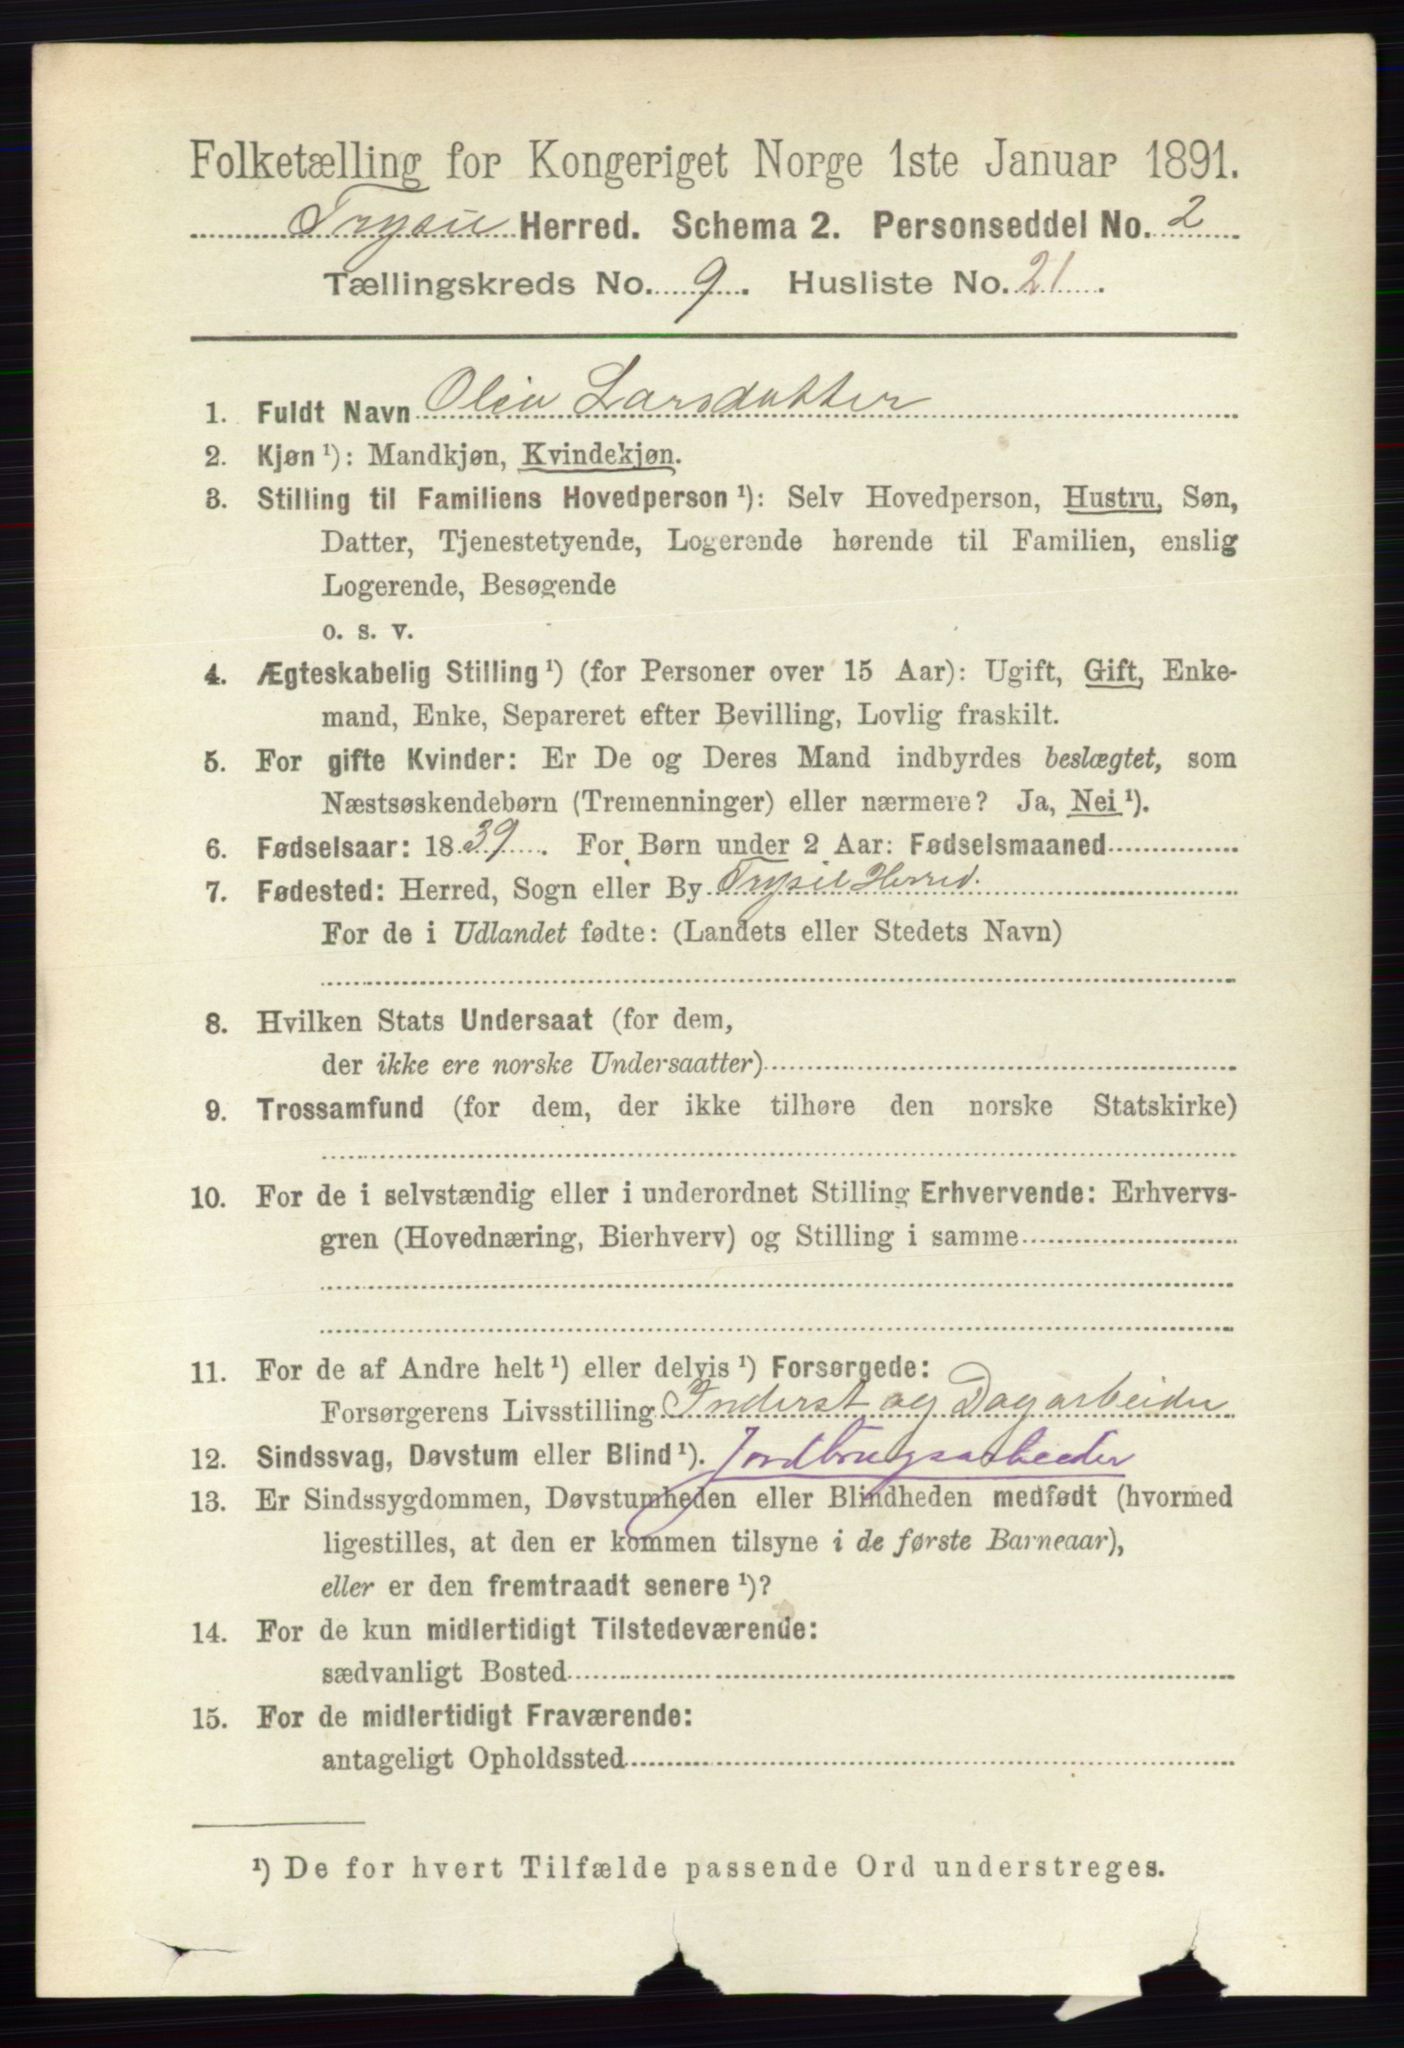 Folketælling for Kongeriget Norge 1ste Januar 1891.
Trysil Herred. Schema 2. Personseddel No. 2
Tællingskreds No. 9. Husliste No. 21.
1. Fuldt Navn Olea Larsdatter
2. Kjøn ¹): Mandkjøn, Kvindekjøn.
3. Stilling til Familiens Hovedperson ¹): Selv Hovedperson, Hustru, Søn,
Datter, Tjenestetyende, Logerende hørende til Familien, enslig
Logerende, Besøgende
o. s. v.
4. Ægteskabelig Stilling ¹) (for Personer over 15 Aar): Ugift, Gift, Enke-
mand, Enke, Separeret efter Bevilling, Lovlig fraskilt.
5. For gifte Kvinder: Er De og Deres Mand indbyrdes beslægtet, som
Næstsøskendebørn (Tremenninger) eller nærmere? Ja, Nei ¹).
6. Fødselsaar: 1839. For Børn under 2 Aar: Fødselsmaaned
7. Fødested: Herred, Sogn eller By Trysil Herred.
For de i Udlandet fødte: (Landets eller Stedets Navn)
8. Hvilken Stats Undersaat (for dem,
der ikke ere norske Undersaatter)
9. Trossamfund (for dem, der ikke tilhøre den norske Statskirke)
10. For de i selvstændig eller i underordnet Stilling Erhvervende: Erhvervs-
gren (Hovednæring, Bierhverv) og Stilling i samme
11. For de af Andre helt ¹) eller delvis ¹) Forsørgede:
Forsørgerens Livsstilling Inderst og Dagarbeider
12. Sindssvag, Døvstum eller Blind ¹). Jordbrugsarbeider
13. Er Sindssygdommen, Døvstumheden eller Blindheden medfødt (hvormed
ligestilles, at den er kommen tilsyne i de første Barneaar),
eller er den fremtraadt senere ¹)?
14. For de kun midlertidigt Tilstedeværende:
sædvanligt Bosted
15. For de midlertidigt Fraværende:
antageligt Opholdssted
¹) De for hvert Tilfælde passende Ord understreges.